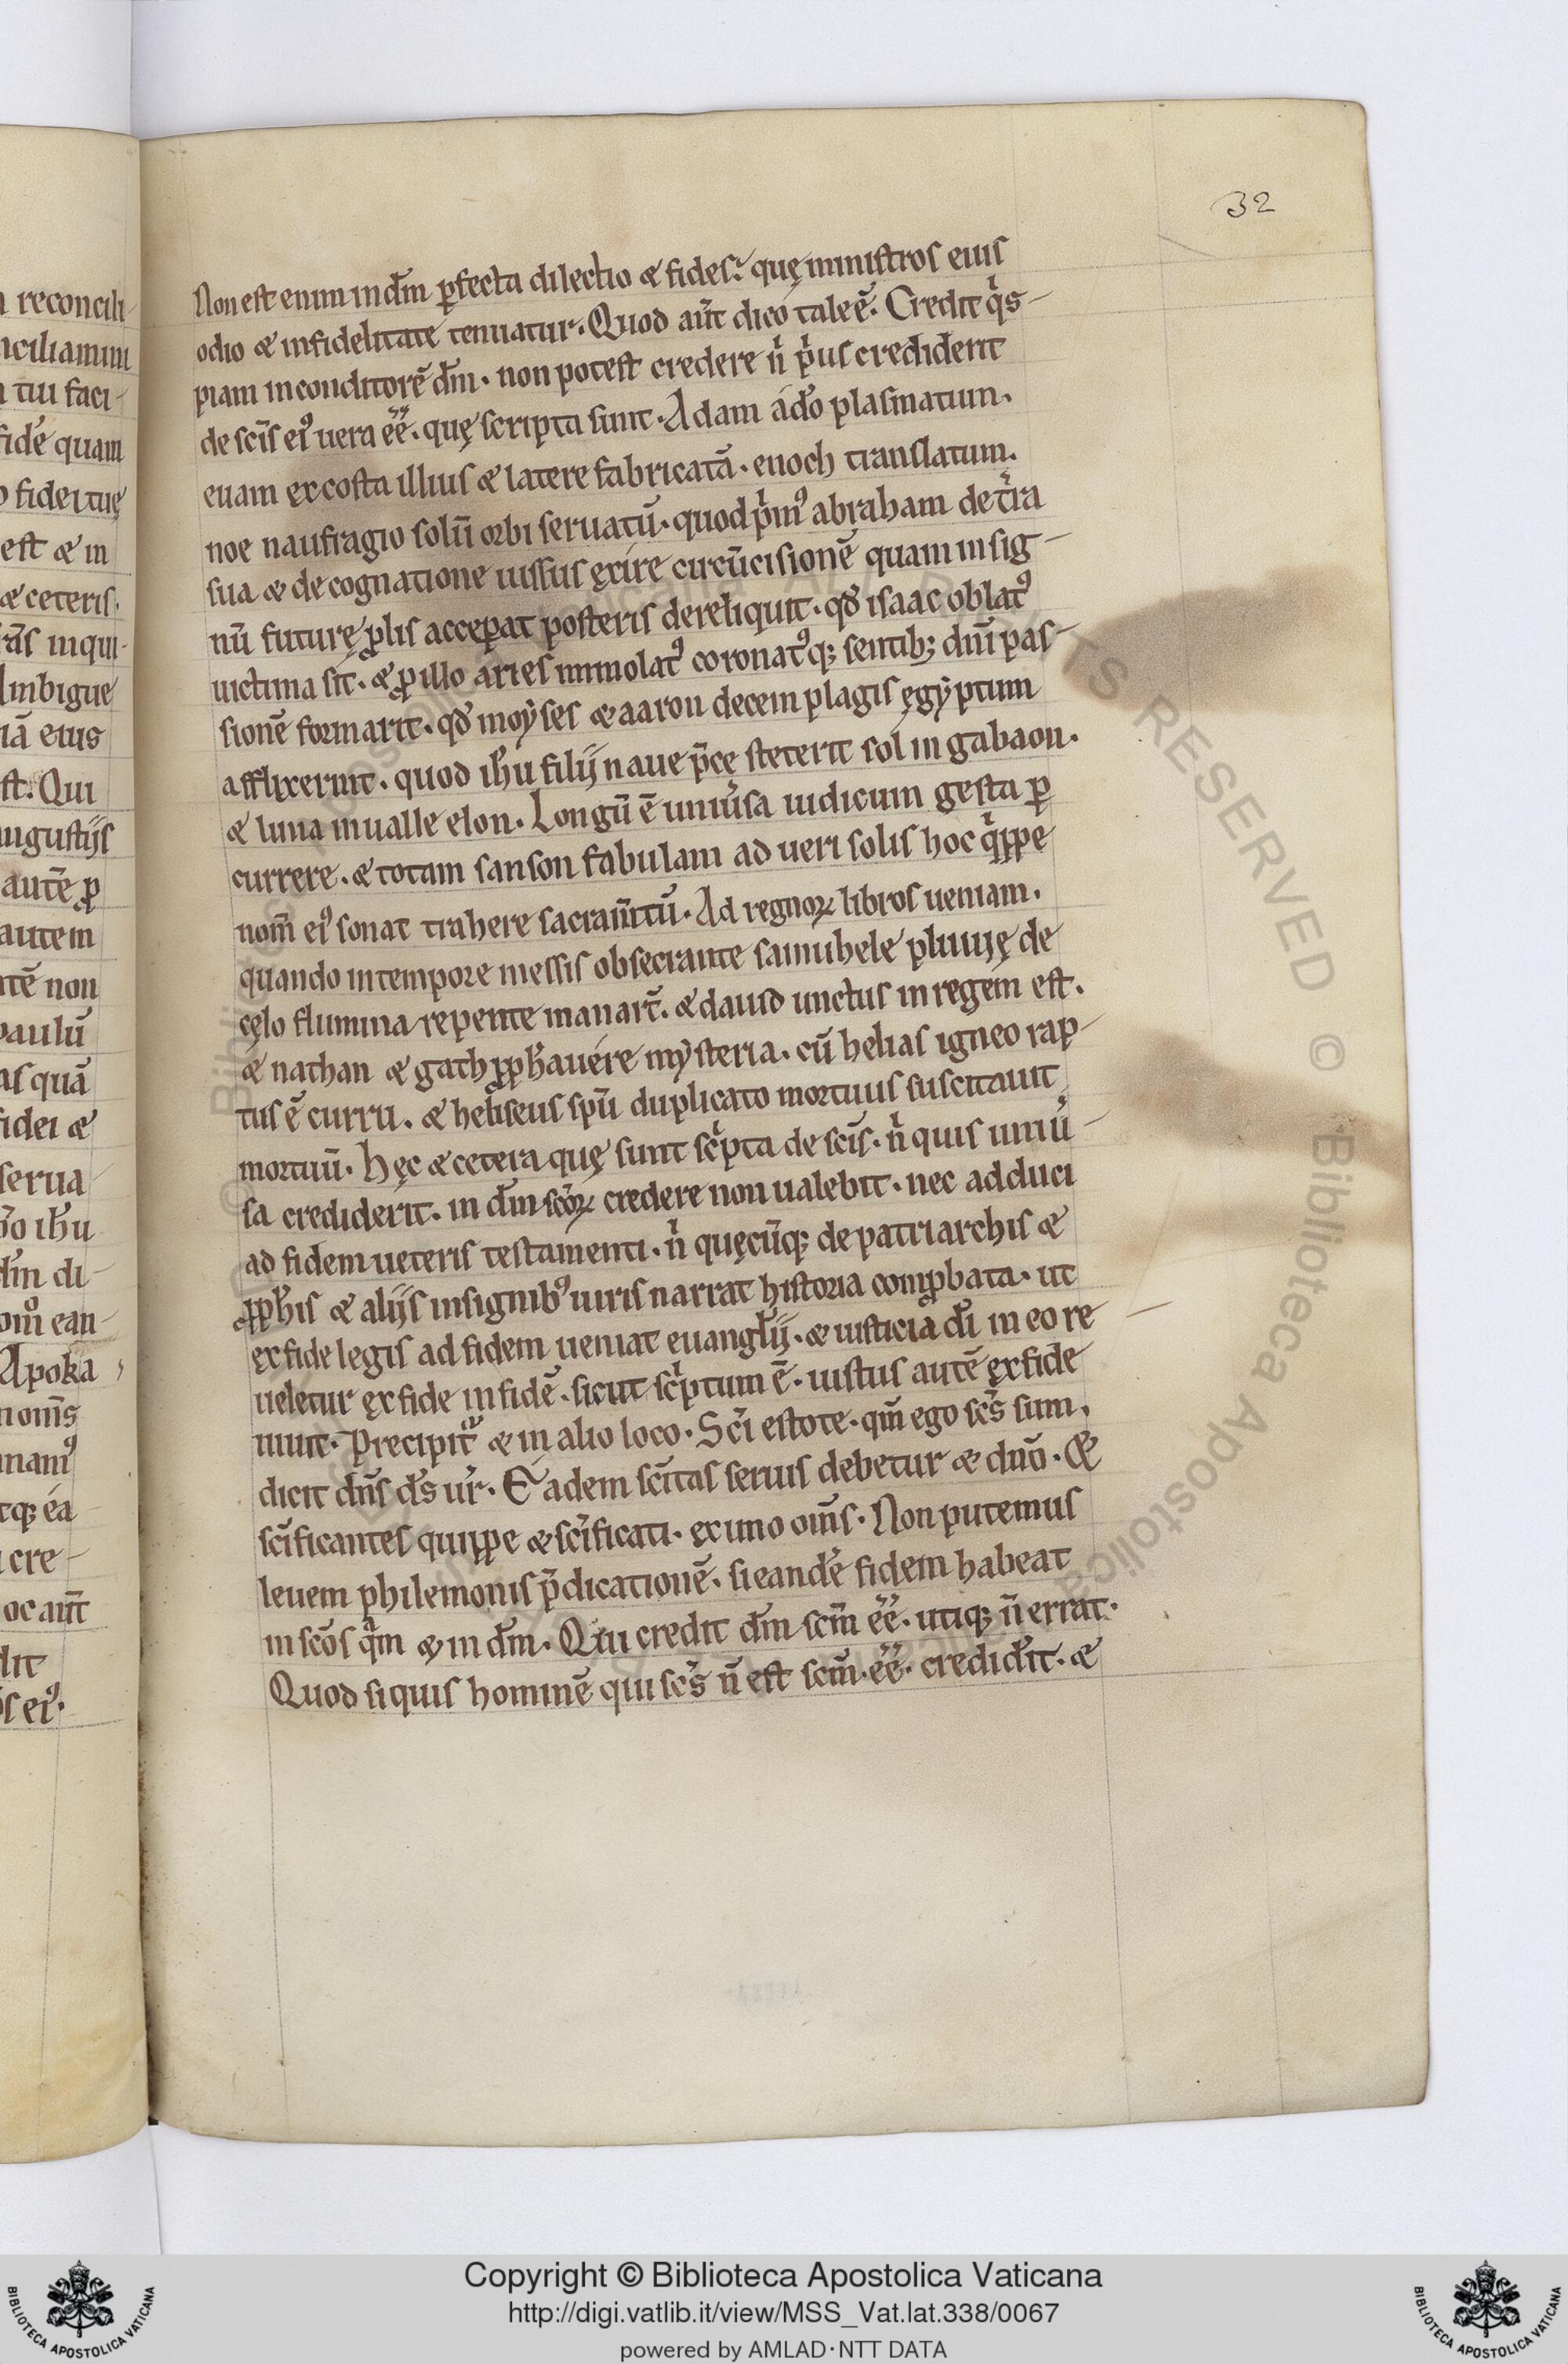 32
Non est enim in dm̄ ꝑfecta dilectio & fides. quę ministros eius
odio & infidelitate tenuatur. Quod aut̄ dico tale ē. Credit qͥs-
piam in conditorē dm̄. non potest credere nͥ pͥus crediderit
de scīs eiꝰ uera eē. quę scripta sunt. Adam a dō plasmatum.
euam ex costa illius & latere fabricatā. enoch translatum.
noe naufragio solū orbi seruatū. quod pͥmꝰ abraham de tr̄ra
sua & de cognatione iussus exire circūcisionē quam in sig-
nū futurę ꝓlis acceꝑat posteris dereliquit. qđ isaac oblatꝰ
uictima sit. & ꝓ illo aries immolatꝰ coronatꝰq; sentib; dnī pas-
sionē formarit. qđ moyses & aaron decem plagis ęgyptum
afflixerint. quod ihū filij naue p̄ce steterit sol in gabaon.
& luna in ualle elon. Longū ē uniūsa iudicum gesta ꝑ
currere. & totam sanson fabulam ad ueri solis hoc qͥppe
nom̄ eiꝰ sonat trahere sacram̄tū. Ad regnoꝝ libros ueniam.
quando in tempore messis obsecrante samuhele pluuię de
cęlo flumina repente manar̄t. & dauid unctus in regem est.
& nathan & gath ꝓph̄auere mysteria. cū helias igneo rap-
tus ē curru. & heliseus spū duplicato mortuus suscitauit
mortuū. Hęc & cetera quę sunt scͥpta de scīs. nͥ quis uniū-
sa crediderit. in dm̄ scōꝝ credere non ualebit. nec adduci
ad fidem ueteris testamenti. nͥ quęcūq; de patriarchis &
ꝓph̄is & alijs insignibꝰ uiris narrat historia comꝓbata. ut
ex fide legis ad fidem ueniat euangl̄ij. & iusticia dī in eo re
ueletur ex fide in fidē. sicut scͥptum ē. iustus autē ex fide
uiuit. Precipit̄ & in alio loco. Scī estote. qm̄ ego scs̄ sum.
dicit dn̄s ds̄ ur̄. Eadem scītas seruis debetur & dnō. &
scīficantes quippe & scīficati. ex uno om̄s. Non putemus
leuem philemonis p̄dicationē. si eandē fidem habeat
in scōs qͣm & in dm̄. Qui credit dm̄ scm̄ eē. utiq; n̄ errat.
Quod si quis hominē qui scs̄ n̄ est scm̄. eē. credid̄it. &
Copyright © Biblioteca Apostolica Vaticana
http://digi.vatlib.it/view/MSS_Vat.lat.338/0067
powered by AMLAD·NTT DATA
BIBLIOTECA APOSTOLICA VATICANA
BIBLIOTECA APOSTOLICA VATICANA